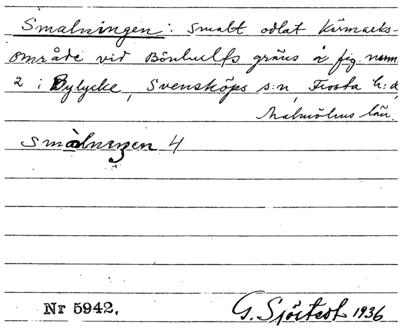 Smalningen: smalt odlat kärmarks-
område vid Bönhults gräns å fig. num
2 i Bylycke, Svensköps s:n, Frosta h:d,
Malmöhus län.
Smalningen 4
Nr 5942. G. Sjöstedt 1936